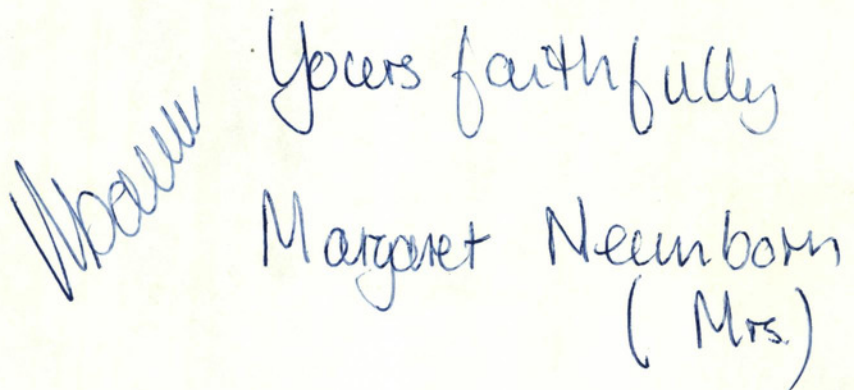 Yours faithfully
Margaret Neumborn
(Mrs.)